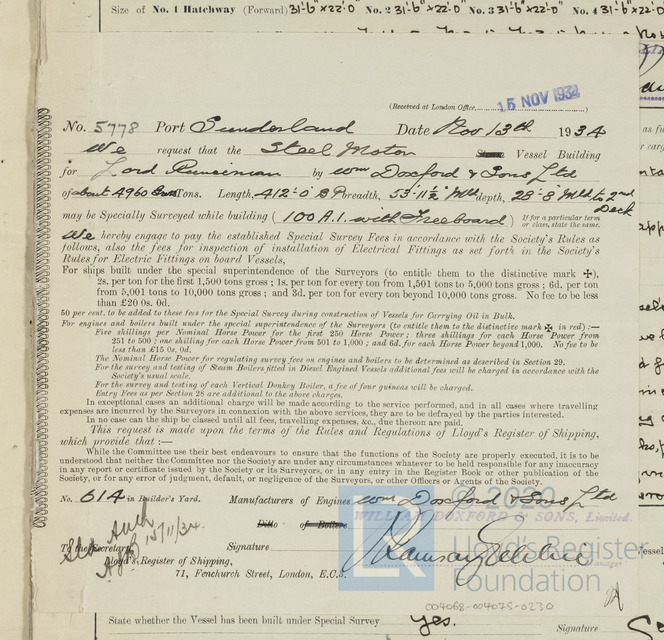 Size of No. 1 Hatchway (Forward) 31'-6" x 22'-0" No. 2 31'-6" x 22'-0" No. 3 31'-6" x 22'-0" No. 4 31'-6" x 22'-0"
(Received at London Office, 15 NOV 1934)
No. 5778 Port Sunderland Date Nov 13th 1934
We request that the Steel Motor Steam Vessel Building
for Lord Runciman by Wm Doxford & Sons Ltd
of about 4960 Gross Tons. Length, 412'-0" B P breadth, 53'-11½" Mld depth, 28'-8" Mld to 2nd Deck
may be Specially Surveyed while building (100 A.1. with Freeboard) If for a particular term or class, state the same.
We hereby engage to pay the established Special Survey Fees in accordance with the Society's Rules as
follows, also the fees for inspection of installation of Electrical Fittings as set forth in the Society's
Rules for Electric Fittings on board Vessels,
For ships built under the special superintendence of the Surveyors (to entitle them to the distinctive mark ✠),
2s. per ton for the first 1,500 tons gross ; 1s. per ton for every ton from 1,501 to 5,000 tons gross ; 6d. per ton
from 5,001 tons to 10,000 tons gross ; and 3d. per ton for every ton beyond 10,000 tons gross. No fee to be less
than £20 0s. 0d.
50 per cent. to be added to these fees for the Special Survey during construction of Vessels for Carrying Oil in Bulk.
For engines and boilers built under the special superintendence of the Surveyors (to entitle them to the distinctive mark ✠ in red) :—
Five shillings per Nominal Horse Power for the first 250 Horse Power ; three shillings for each Horse Power from
251 to 500 ; one shilling for each Horse Power from 501 to 1,000 ; and 6d. for each Horse Power beyond 1,000. No fee to be
less than £15 0s. 0d.
The Nominal Horse Power for regulating survey fees on engines and boilers to be determined as described in Section 29.
For the survey and testing of Steam Boilers fitted in Diesel Engined Vessels additional fees will be charged in accordance with the
Society's usual scale.
For the survey and testing of each Vertical Donkey Boiler, a fee of four guineas will be charged.
Entry Fees as per Section 28 are additional to the above charges.
In exceptional cases an additional charge will be made according to the service performed, and in all cases where travelling
expenses are incurred by the Surveyors in connection with the above services, they are to be defrayed by the parties interested.
In no case can the ship be classed until all fees, travelling expenses, &c., due thereon are paid.
This request is made upon the terms of the Rules and Regulations of Lloyd's Register of Shipping,
which provide that :—
While the Committee use their best endeavours to ensure that the functions of the Society are properly executed, it is to be
understood that neither the Committee nor the Society are under any circumstances whatever to be held responsible for any inaccuracy
in any report or certificate issued by the Society or its Surveyors, or in any entry in the Register Book or other publication of the
Society, or for any error of judgment, default, or negligence of the Surveyors, or other Officers or Agents of the Society.
No. 614 in Builder's Yard. Manufacturers of Engines, Wm Doxford & Sons Ltd
© 2020
WILLIAM DOXFORD & SONS, Limited.
Ditto of Boilers
15/11/34
To the Secretary Signature
Lloyd's Register of Shipping,
71, Fenchurch Street, London, E.C.3.
Lloyd's Register
Foundation
004068-004075-0230
State whether the Vessel has been built under Special Survey yes. Signature